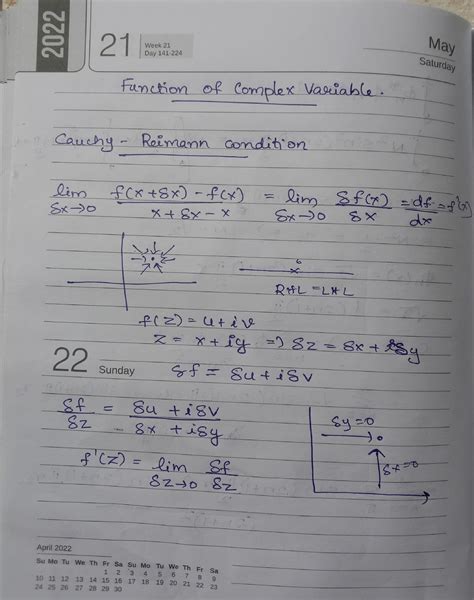 2022
21
Week 21
Day 141-224
May
Saturday
Function of Complex Variable.
Cauchy - Reimann condition
lim δx→0 f(x+δx) - f(x) / x+δx-x = lim δx→0 δf(x) / δx = df/dx = f'(x)
RHL = LHL
f(z) = u+iv
z = x+iy => δz = δx + iδy
22 Sunday
δf = δu + iδv
δf/δz = δu + iδv / δx + iδy
δy=0
δx=0
f'(z) = lim δz→0 δf/δz
April 2022
Su Mo Tu We Th Fr Sa
1 2
3 4 5 6 7 8 9
10 11 12 13 14 15 16
17 18 19 20 21 22 23
24 25 26 27 28 29 30